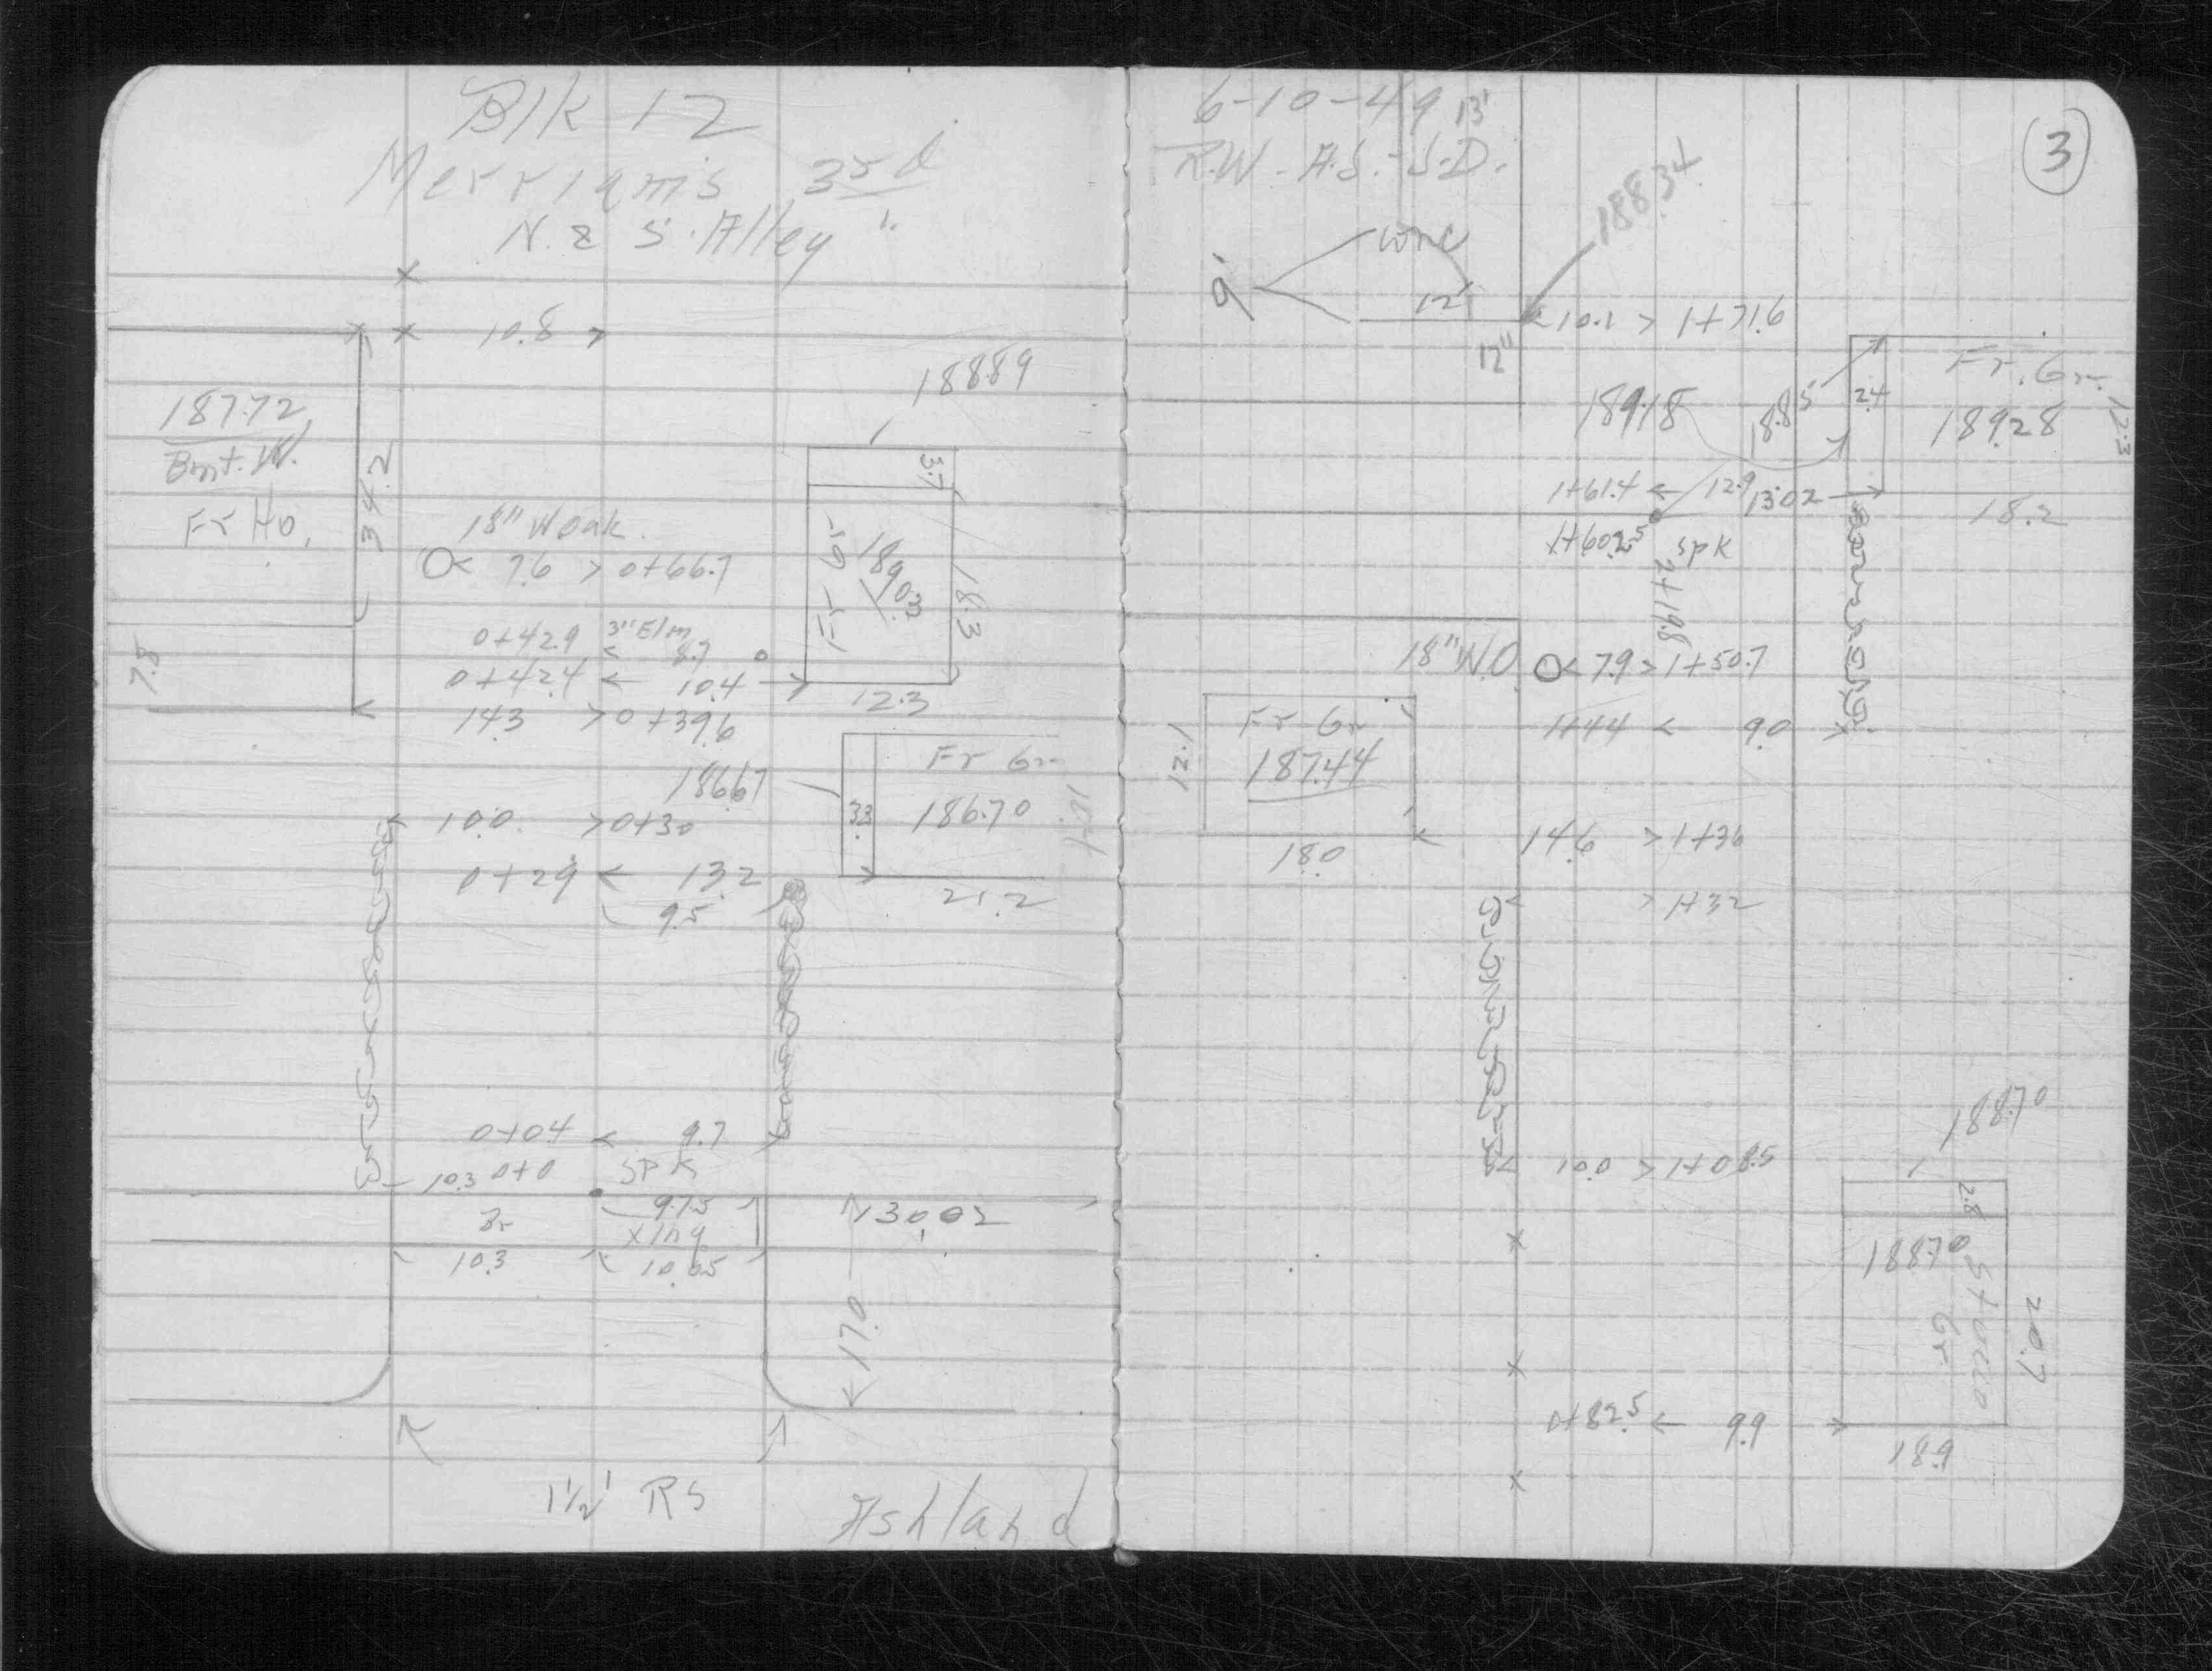 Blk 12
Merriam's 3rd
N. & S. Alley "
10.8
187.72
Bmt. W.
Fr Ho.
34.2
7.8
188.89
3.7
18" W Oak
7.6 > 0+66.7
Fr Gr
189.03
18.3
0+42.9 3" Elm
8.7
0+42.4 < 10.4
12.3
14.3 > 0+39.6
186.67
Fr Gr
33
186.70
10.0 > 0+30
0+29 < 13.2
21.2
9.5
0+04 < 9.7
10.3 0+0 SPK
9.75
130.02
Xing
10.3
10.05
17.0
1½' RS
Ashland
6-10-49
13'
R.W. - A.S. - S.D.
3
188.34
9'
12'
12"
10.1 > 1+71.6
Fr. Gr.
24
189.28
12.3
189.18
188.5
1+61.4 < 12.9
130.2
18.2
SPK
2+19.8
18" W.O.
7.9 > 1+50.7
Fr Gr
187.44
12.1
18.0
1+44 < 9.0
14.6 > 1+36
> 1+32
188.70
10.0 > 1+08.5
2.8
188.70
Stucco
Gr
20.7
0+82.5 < 9.9
18.9